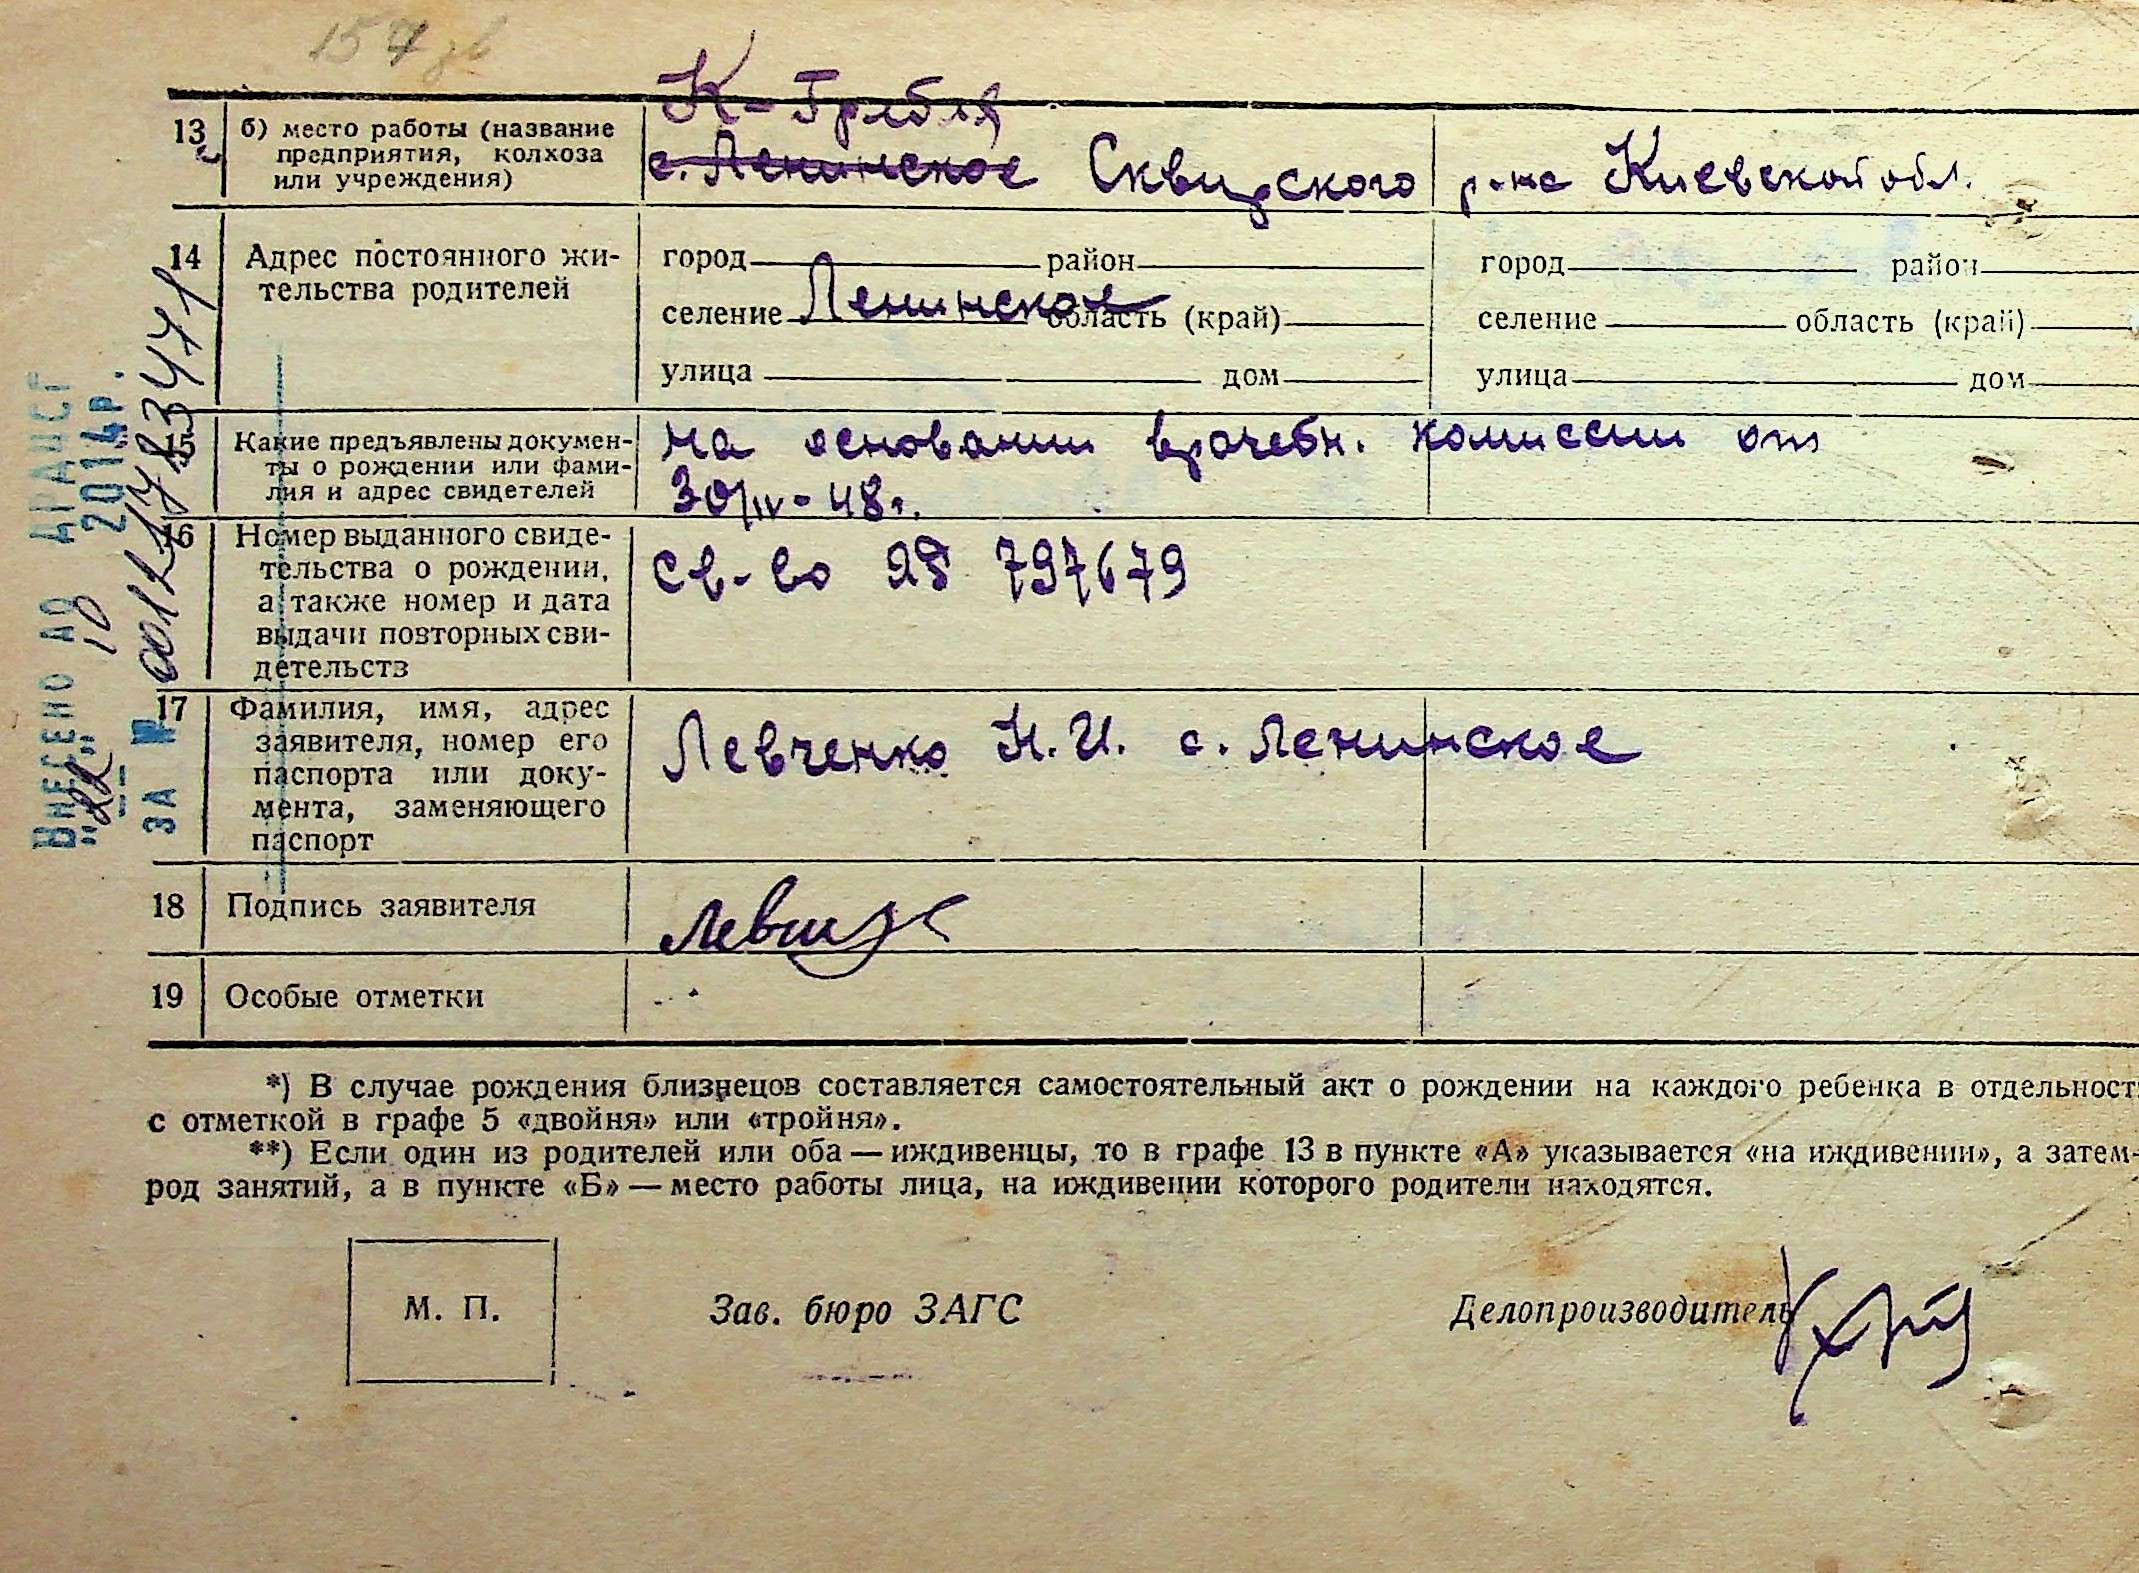 157 зв
К-Гребля
13 б) место работы (название предприятия, колхоза или учреждения) с. Ленинское Сквирского р-на Киевской обл.
14 Адрес постоянного жи-
тельства родителей
город район город район
селение Ленинское область (край) селение область (край)
улица дом улица дом
15 Какие предъявлены докумен-
ты о рождении или фами-
лия и адрес свидетелей
на основании врачебн. комиссии от
30/IV-48г.
16 Номер выданного свиде-
тельства о рождении,
а также номер и дата
выдачи повторных сви-
детельств
св-во 797679
17 Фамилия, имя, адрес
заявителя, номер его
паспорта или доку-
мента, заменяющего
паспорт
Левченко Н.И. с. Ленинское
18 Подпись заявителя
19 Особые отметки
*) В случае рождения близнецов составляется самостоятельный акт о рождении на каждого ребенка в отдельност
с отметкой в графе 5 «двойня» или «тройня».
**) Если один из родителей или оба — иждивенцы, то в графе 13 в пункте «А» указывается «на иждивении», а затем-
род занятий, а в пункте «Б» — место работы лица, на иждивении которого родители находятся.
М. П. Зав. бюро ЗАГС Делопроизводитель
ВНЕСЕНО ДО ДРАЦСГ
"22" 10 2014р.
ЗА № 00121783471